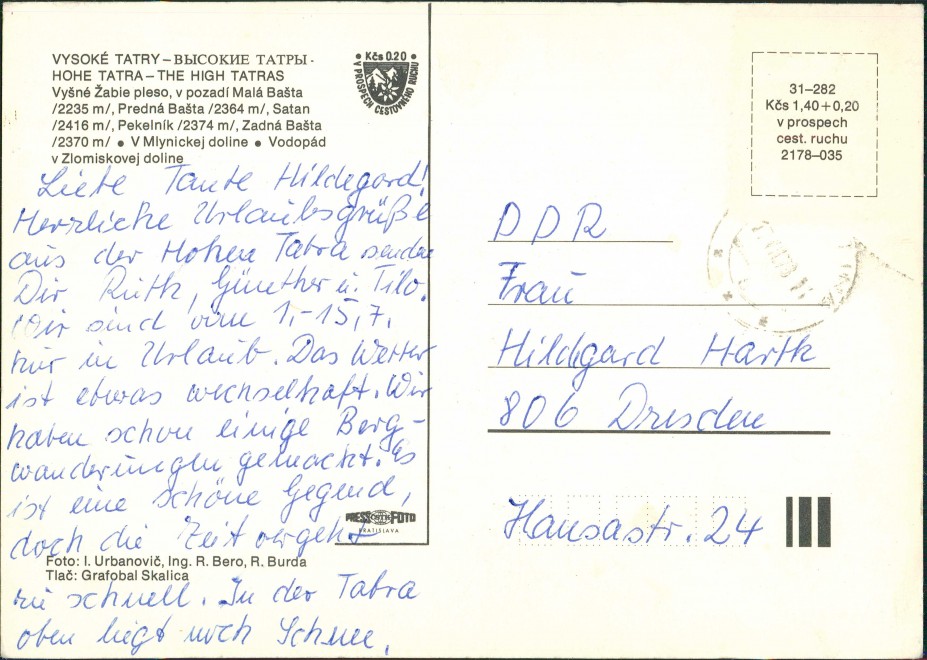 VYSOKÉ TATRY – ВЫСОКИЕ ТАТРЫ -
HOHE TATRA – THE HIGH TATRAS
Vyšné Žabie pleso, v pozadí Malá Bašta
/2235 m/, Predná Bašta /2364 m/, Satan
/2416 m/, Pekelník /2374 m/, Zadná Bašta
/2370 m/ ● V Mlynickej doline ● Vodopád
v Zlomiskovej doline
• Kčs 0.20 •
V PROSPECH CESTOVNÉHO RUCHU
Liebe Tante Hildegard!
Herzliche Urlaubsgrüße
aus der Hohen Tatra senden
Dir Ruth, Günther u. Tilo.
Wir sind vom 1.-15.7.
hier in Urlaub. Das Wetter
ist etwas wechselhaft. Wir
haben schon einige Berg-
wanderungen gemacht. Es
ist eine schöne Gegend,
doch die Zeit vergeht
zu schnell. In der Tatra
oben liegt noch Schnee.
PRESSFOTO
BRATISLAVA
Foto: I. Urbanovič, Ing. R. Bero, R. Burda
Tlač: Grafobal Skalica
31–282
Kčs 1,40+0,20
v prospech
cest. ruchu
2178–035
DDR
Frau
Hildgard Harth
806 Dresden
Hansastr. 24